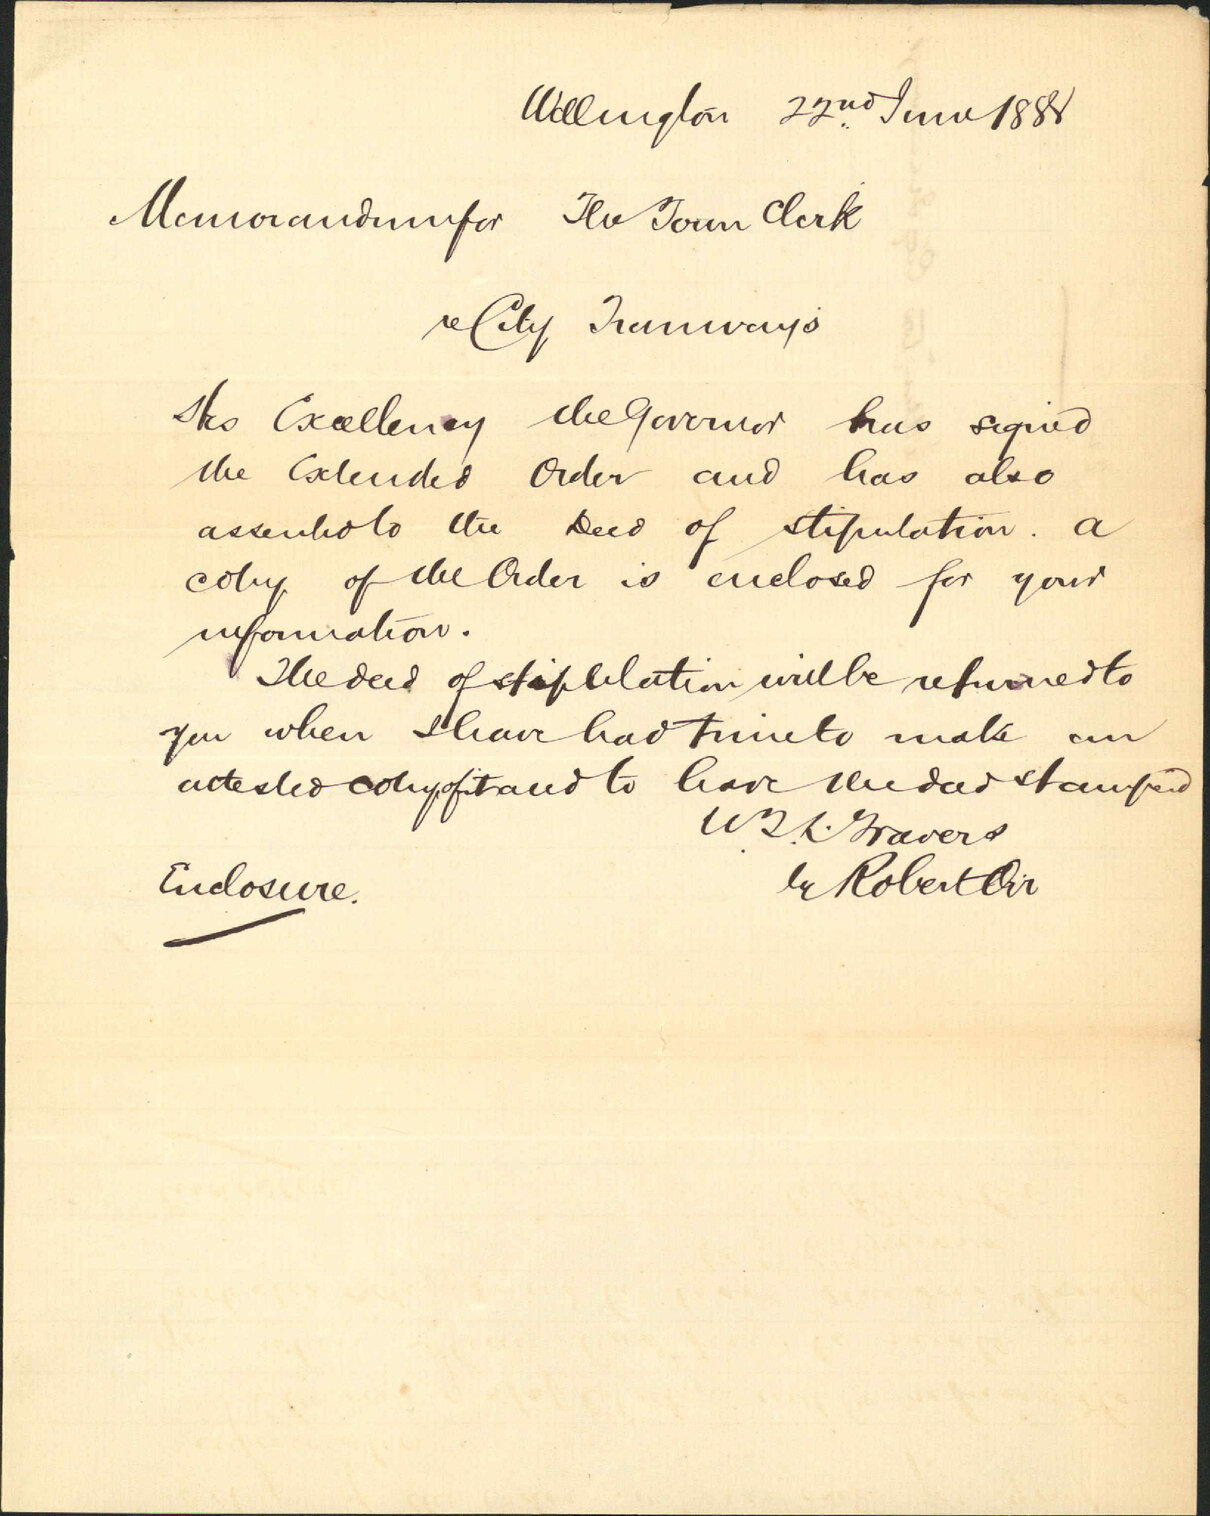 Wellington 22nd June 1888
Memorandum for The Town Clerk
re City Tramways
His Excellency the Governor has signed
the Extended Order and has also
assented to the Deed of stipulation. A
copy of the Order is enclosed for your
information.
The deed of stipulation will be returned to
you when I have had time to make an
attested copy of it and to have the deed stamped
W.T.L. Travers
by Robert Orr
Enclosure.